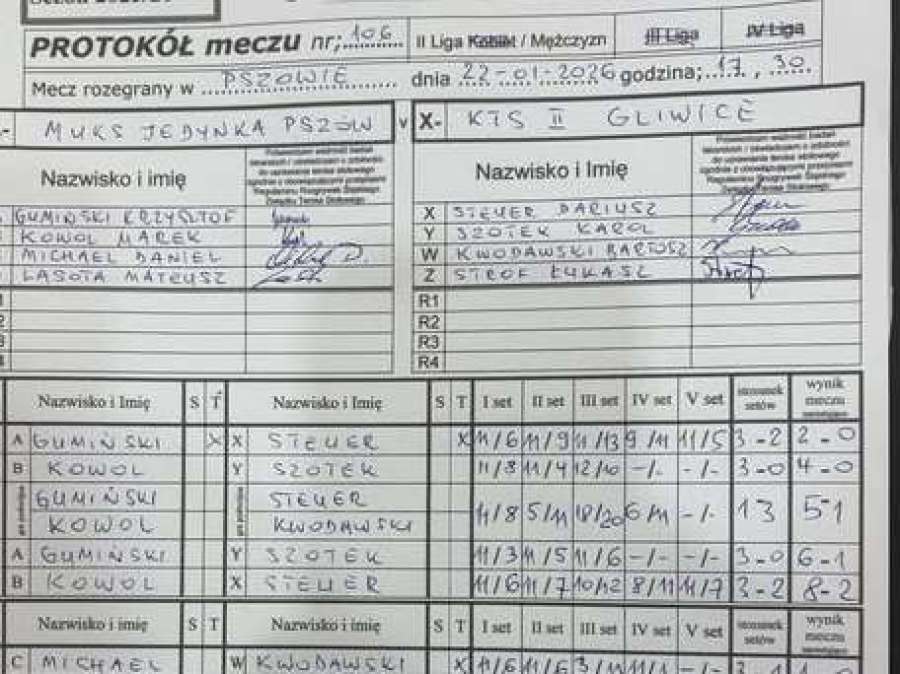 PROTOKÓŁ meczu nr; 106 II Liga Kobiet / Mężczyzn III Liga IV Liga
Mecz rozegrany w PSZOWIE dnia 22-01-2026 godzina; 17, 30
MUKS JEDYNKA PSZÓW v X- KTS II GLIWICE
Nazwisko i imię Nazwisko i Imię
GUMIŃSKI KRZYSZTOF X STEUER DARIUSZ
KOWOL MAREK Y SZOTEK KAROL
MICHAEL DANIEL W KWODAWSKI BARTOSZ
LASOTA MATEUSZ Z STROF ŁUKASZ
R1
R2
R3
R4
Nazwisko i Imię S T Nazwisko i imię S T I set II set III set IV set V set stosunek setów wynik meczu
A GUMIŃSKI X X STEUER X 11/6 11/9 11/13 9/11 11/5 3-2 2-0
B KOWOL Y SZOTEK 11/8 11/4 12/10 -/- -/- 3-0 4-0
GUMIŃSKI STEUER
KOWOL KWODAWSKI 11/8 5/11 18/20 6/11 -/- 13 5-1
A GUMIŃSKI Y SZOTEK 11/3 11/5 11/6 -/- -/- 3-0 6-1
B KOWOL X STEUER 11/6 11/7 10/12 8/11 11/7 3-2 8-2
Nazwisko i Imię S T Nazwisko i imię S T I set II set III set IV set V set stosunek setów wynik meczu
C MICHAEL W KWODAWSKI X 11/6 11/6